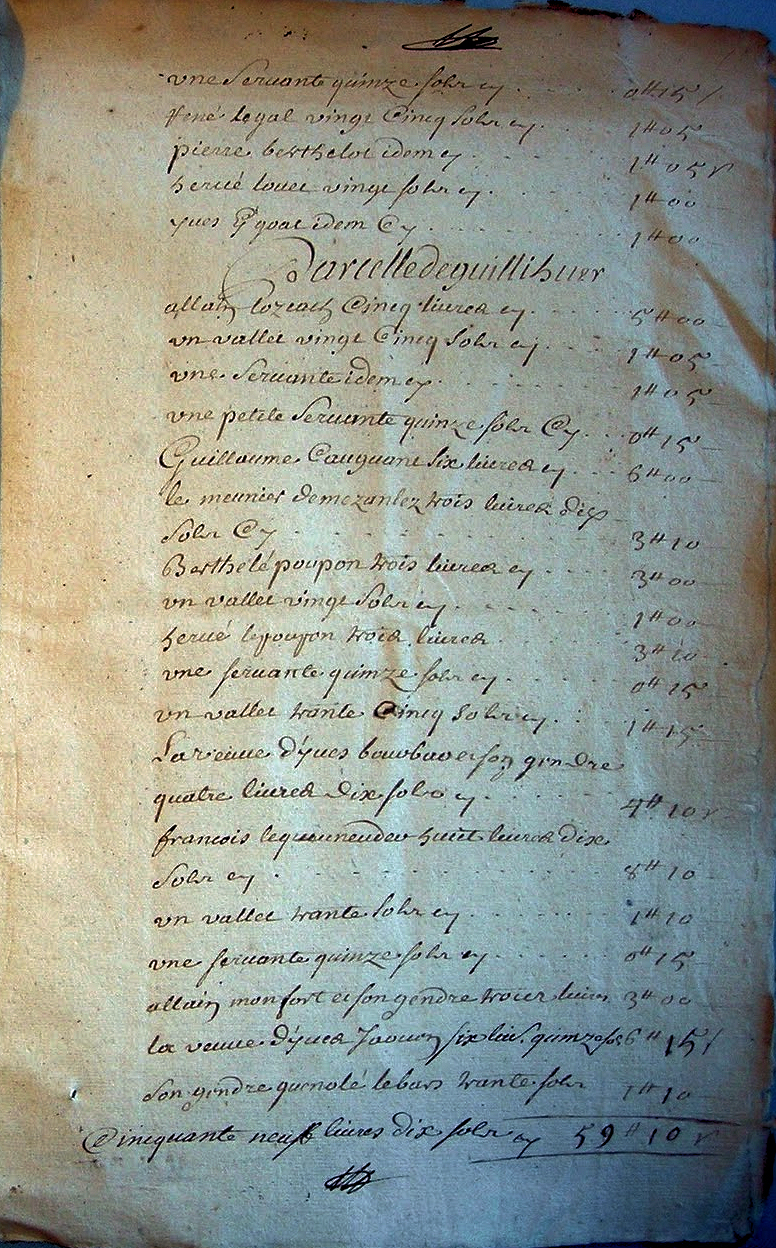 une Servante quinze sols cy . . . . 0tt 15
René Legal vingt Cinq Sols cy . . . 1tt 05
pierre berthelot idem cy . . . 1tt 05
hervé louet vingt sols cy . . . . 1tt 00
yves idem Cy . . . . 1tt 00
Parcelle de guillihuer
allain lozeach Cinq livres cy . . . . 5tt 00
un vallet vingt Cinq Sols cy . . . 1tt 05
une Servante idem cy . . . . 1tt 05
une petite Servante quinze sols Cy . . . 0tt 15
Guillaume Cauguant Six livres cy . . . 6tt 00
le meunier de mezanlez trois livres dix
Sols Cy . . . . 3tt 10
Berthelé poupon trois livres cy . . . . 3tt 00
un vallet vingt Sols cy . . . . 1tt 00
hervé le poupon trois livres . . . 3tt 10
une servante quinze sols cy . . . . 0tt 15
un vallet trante Cinq Sols cy . . . 1tt 15
La veuve d'yves et son gendre
quatre livres dix sols cy . . . . 4tt 10
francois huit livres dix
Sols cy . . . . 8tt 10
un vallet trante Sols cy . . . . 1tt 10
une servante quinze sols cy . . . . 0tt 15
allain monfort et son gendre trois livres 3tt 00
la veuve d'yves Jaouen six liv. quinze sols 6tt 15
Son gendre guenolé lebars trante sols 1tt 10
Cincquante neuf livres dix sols cy 59tt 10